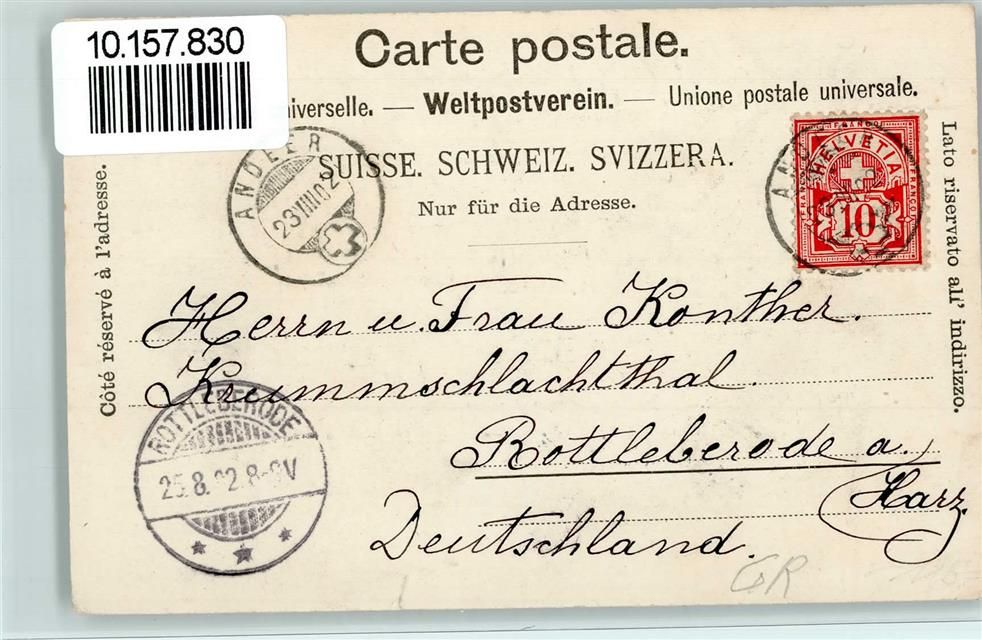 10.157.830
Carte postale.
iverselle. — Weltpostverein. — Unione postale universale.
SUISSE. SCHWEIZ. SVIZZERA.
Nur für die Adresse.
Côté réservé à l'adresse.
Lato riservato all' indirizzo.
ANDEER
23 VIII 02
HELVETIA
FRANCO
10
Herrn u. Frau Konther.
Krummschlachtthal.
Rottleberode a.
(Harz.
Deutschland.
ROTTLEBERODE
25.8.02.8-9V
GR